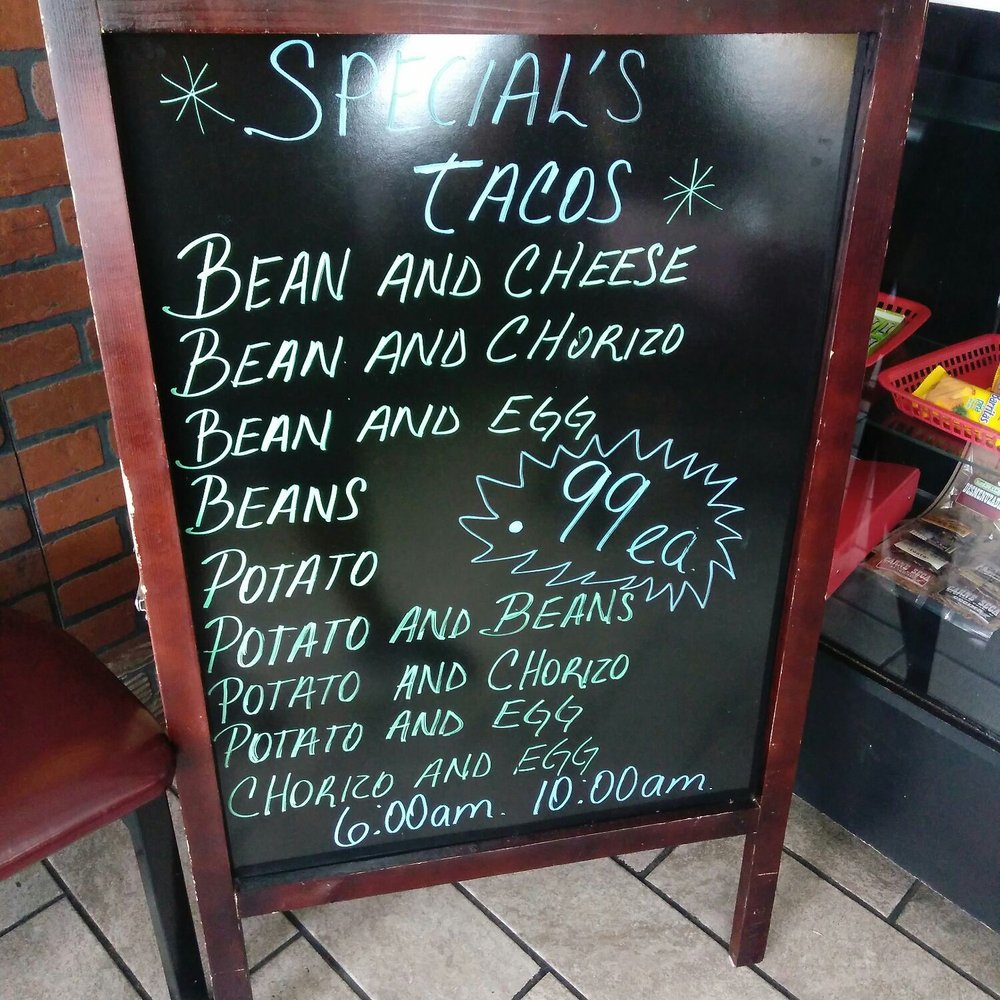 * SPECIAL'S
TACOS *
BEAN AND CHEESE
BEAN AND CHORIZO
BEAN AND EGG
BEANS
.99 ea.
POTATO
POTATO AND BEANS
POTATO AND CHORIZO
POTATO AND EGG
CHORIZO AND EGG
6:00am. 10:00am.